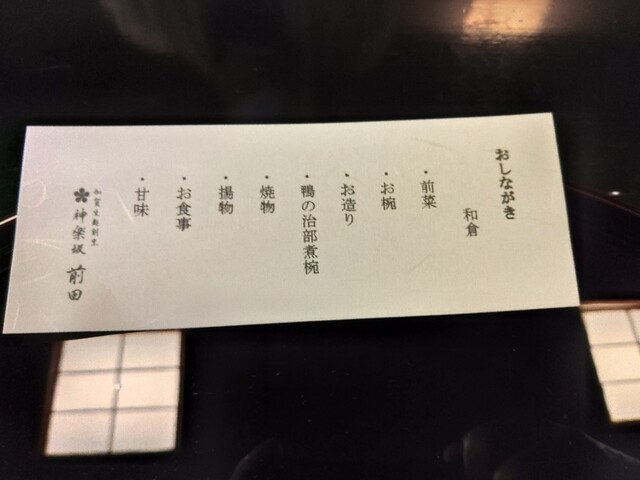 おしながき
和倉
・前菜
・お椀
・お造り
・鴨の治部煮椀
・焼物
・揚物
・お食事
・甘味
加賀生麩割烹
神楽坂 前田